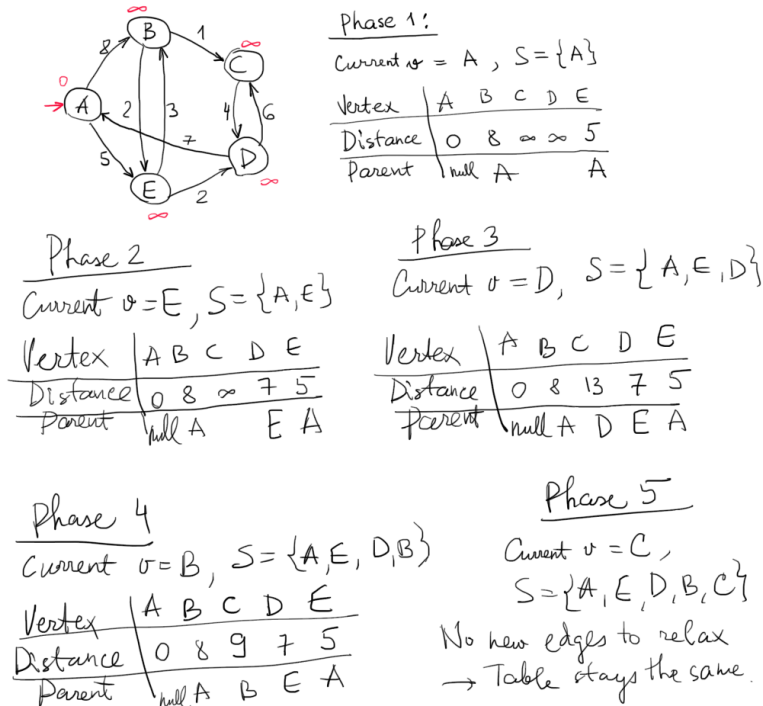 ∞
B
8
1
∞
C
0
A
2
3
4
6
7
5
D
∞
E
2
∞
Phase 1:
Current v = A , S={A}
Vertex A B C D E
Distance 0 8 ∞ ∞ 5
Parent null A A
Phase 2
Current v=E, S={A,E}
Vertex A B C D E
Distance 0 8 ∞ 7 5
Parent null A E A
Phase 3
Current v=D, S={A,E,D}
Vertex A B C D E
Distance 0 8 13 7 5
Parent null A D E A
Phase 4
Current v=B, S={A,E,D,B}
Vertex A B C D E
Distance 0 8 9 7 5
Parent null A B E A
Phase 5
Current v=C,
S={A,E,D,B,C}
No new edges to relax
→ Table stays the same.